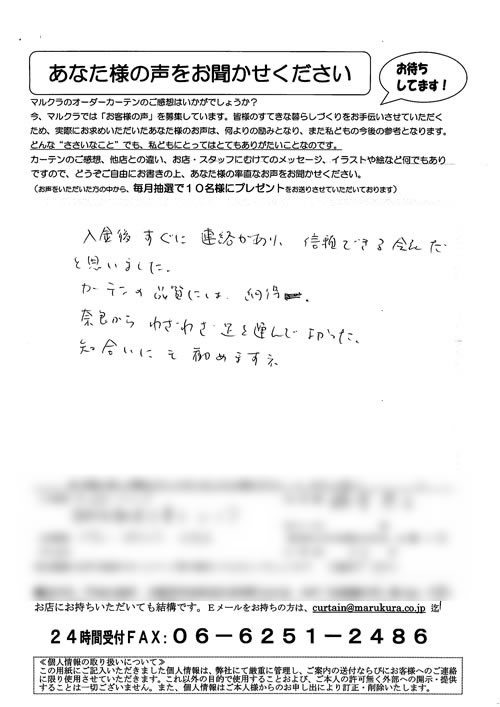 あなた様の声をお聞かせください
お待ち
してます!
マルクラのオーダーカーテンのご感想はいかがでしょうか?
今、マルクラでは「お客様の声」を募集しています。皆様のすてきな暮らしづくりをお手伝いさせていただく
ため、実際にお求めいただいたあなた様のお声は、何よりの励みとなり、また私どもの今後の参考となります。
どんな“ささいなこと”でも、私どもにとってはとてもありがたいことなのです。
カーテンのご感想、他店との違い、お店・スタッフにむけてのメッセージ、イラストや絵など何でもあり
ですので、どうぞご自由にお書きの上、あなた様の率直なお声をお聞かせください。
(お声をいただいた方の中から、毎月抽選で10名様にプレゼントをお送りさせていただいております)
入金後すぐに連絡があり、信頼できる
と思いました。
カーテンの品質には、納得
奈良からわざわざ足を運んでよかった。
知合いにも勧めますネ
お店にお持ちいただいても結構です。Eメールをお持ちの方は、curtain@marukura.co.jp 迄!
24時間受付FAX:06-6251-2486
≪個人情報の取り扱いについて≫
この用紙にご記入いただきました個人情報は、弊社にて厳重に管理し、ご案内の送付ならびにお客様へのご連絡
に限り使用させていただきます。これ以外の目的で使用することおよび、ご本人の許可無く外部への開示・提供
することは一切ございません。また、個人情報はご本人様からのお申し出により訂正・削除いたします。